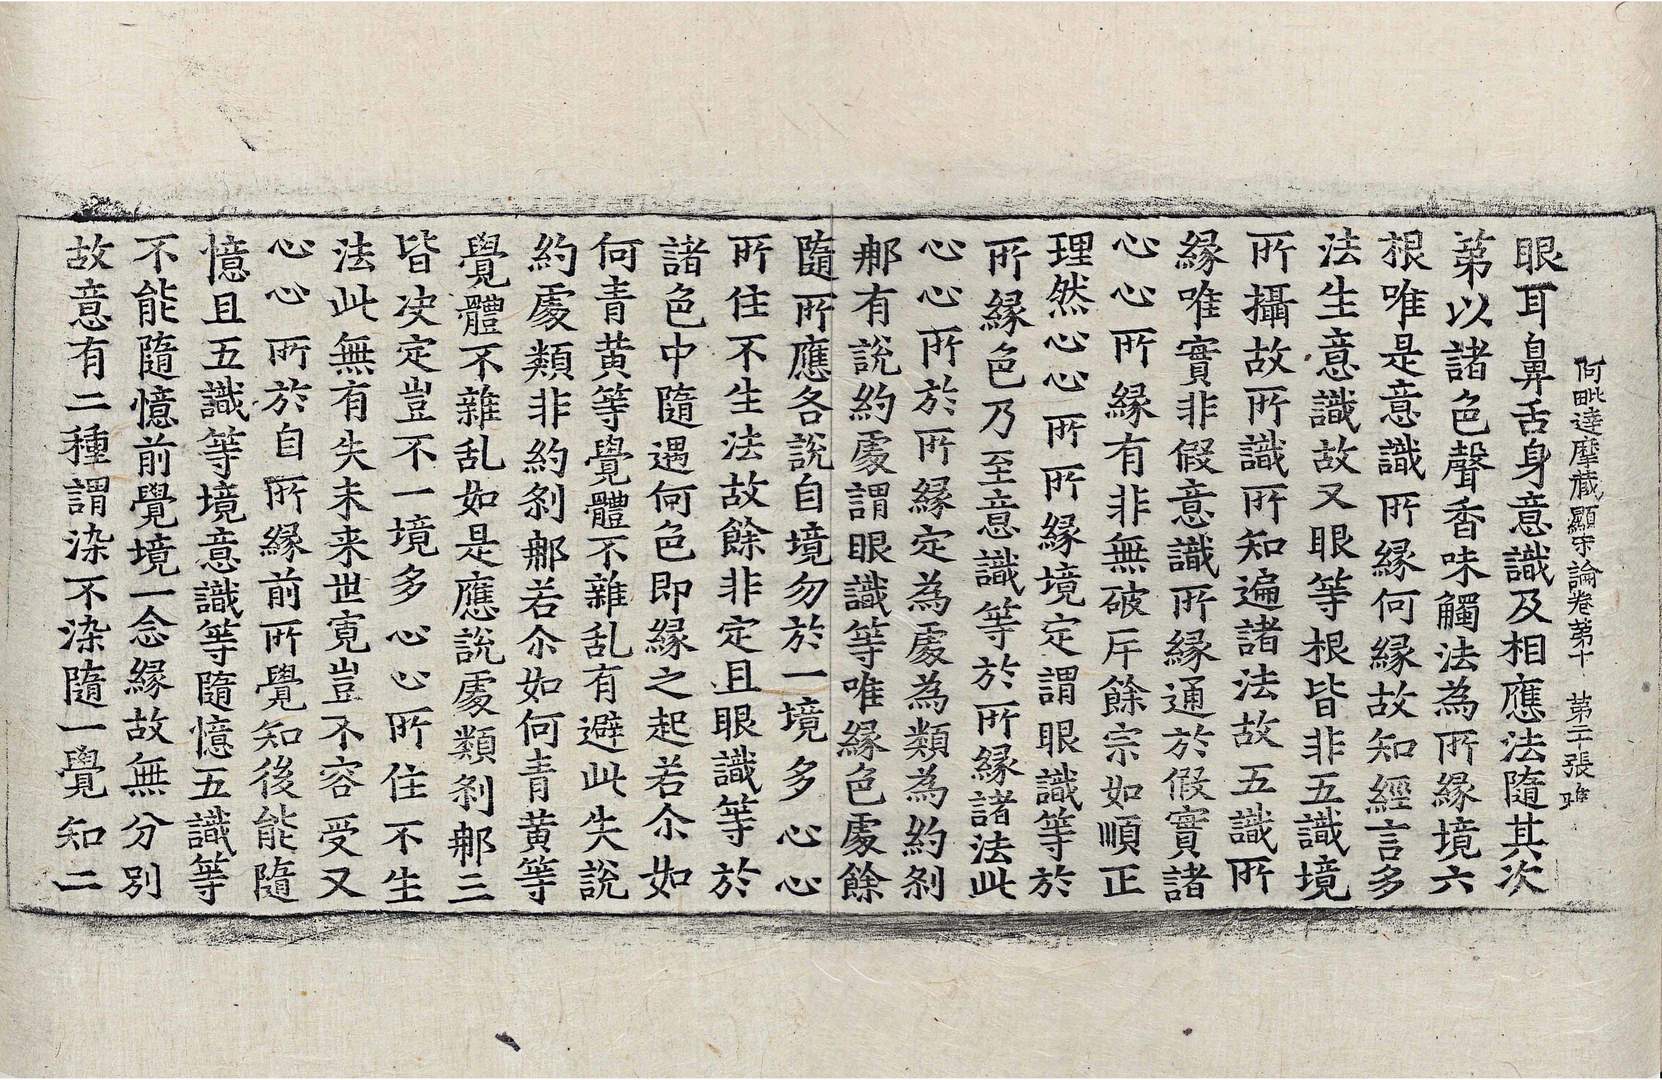 阿毗達摩藏顯宗論卷第十 第二十張 唯
眼耳鼻舌身意識及相應法隨其次
第以諸色聲香味觸法為所緣境六
根唯是意識所緣何緣故知經言多
法生意識故又眼等根皆非五識境
所攝故所識所知遍諸法故五識所
緣唯實非假意識所緣通於假實諸
心心所緣有非無破斥餘宗如順正
理然心心所所緣境定謂眼識等於
所緣色乃至意識等於所緣諸法此
心心所於所緣定為處為類為約剎
那有說約處謂眼識等唯緣色處餘
隨所應各說自境勿於一境多心心
所住不生法故餘非定且眼識等於
諸色中隨遇何色即緣之起若尒如
何青黃等覺體不雜乱有避此失說
約處類非約剎那若尒如何青黃等
覺體不雜乱如是應說處類剎那三
皆决定豈不一境多心心所住不生
法此無有失未来世寬豈不容受又
心心所於自所緣前所覺知後能隨
憶且五識等境意識等隨憶五識等
不能隨憶前覺境一念緣故無分別
故意有二種謂染不染隨一覺知二